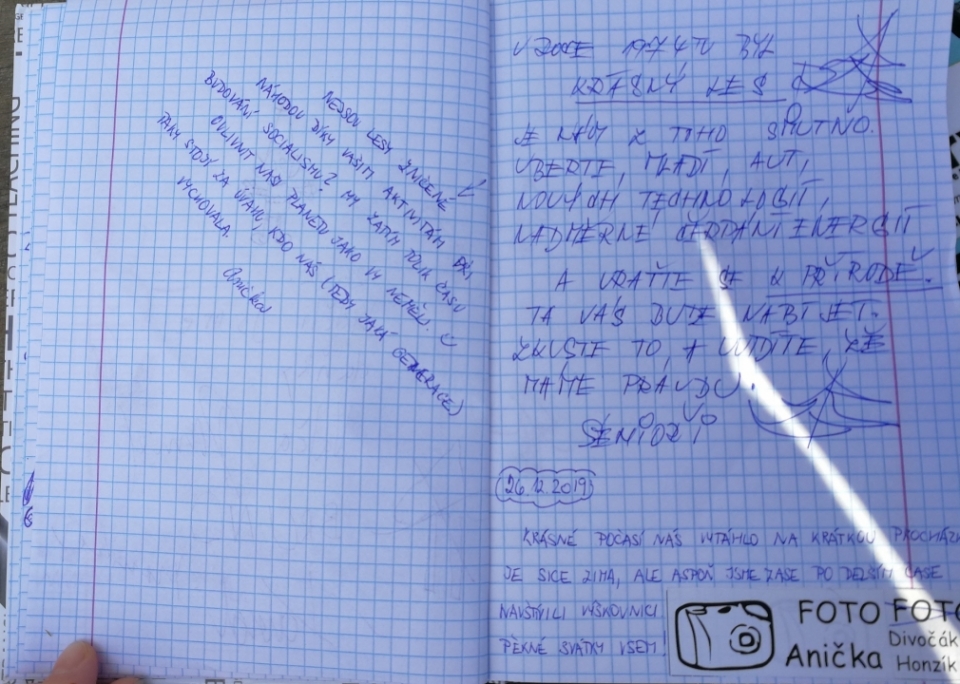 NEJSOU LESY ZNIČENÉ
NÁHODOU DÍKY VAŠIM AKTIVITÁM PŘI
BUDOVÁNÍ SOCIALISMU? MY ZATÍM TOLIK ČASU
OVLIVNIT NAŠI PLANETU JAKO VY NEMĚLI.
TAKY STOJÍ ZA ÚVAHU, KDO NÁS (TEDY JAKÁ GENERACE)
VYCHOVALA.
V ROCE 1974 TU BYL
KRÁSNÝ LES
JE NÁM Z TOHO SMUTNO.
UBERTE, MLADÍ, AUT,
NOVÝCH TECHNOLOGIÍ,
NADMĚRNÉ ČERPÁNÍ ENERGIÍ
A VRAŤTE SE K PŘÍRODĚ.
TA VÁS BUDE NABÍJET.
ZKUSTE TO, A UVIDÍTE, ŽE
MÁME PRAVDU.
SENIOŘI
26.12.2019
KRÁSNÉ POČASÍ NÁS VYTÁHLO NA KRÁTKOU
JE SICE ZIMA, ALE ASPOŇ JSME ZASE PO DELŠÍM ČASE
NAVŠTÍVILI VÝŠKOVNICI
PĚKNÉ SVÁTKY VŠEM!
FOTO FOTO
Anička Divočák
Honzík